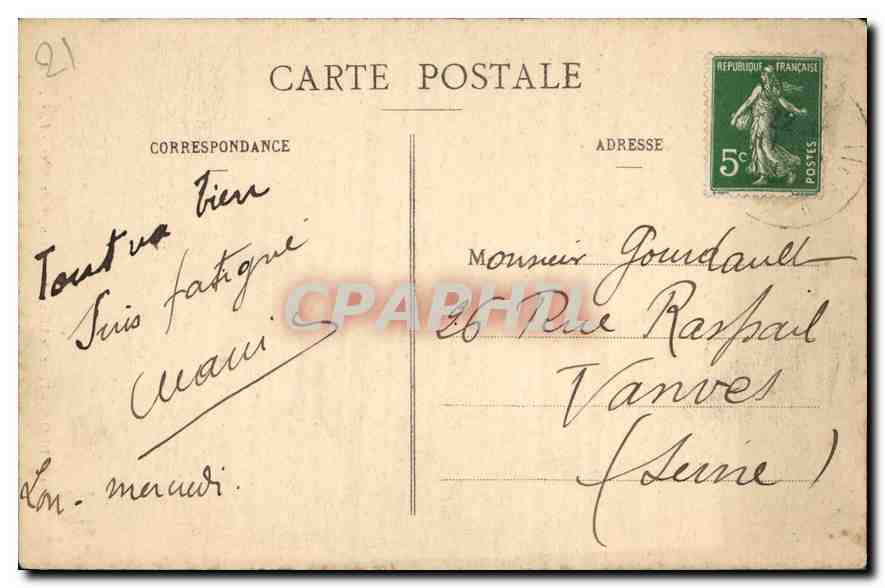 21
CARTE POSTALE
CORRESPONDANCE
ADRESSE
REPUBLIQUE FRANÇAISE
5c
POSTES
Tout va bien
Suis fatigué
mercredi.
Monsieur Gourdault
26 Rue Raspail
Vanves
(Seine)
CPAPHIL